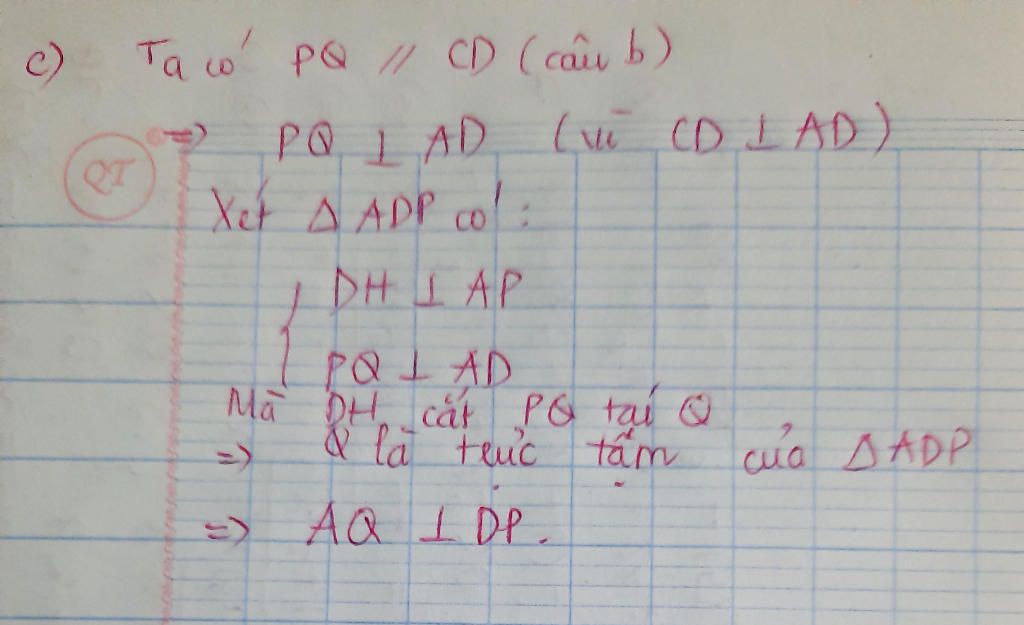 c) Ta có PQ // CD (câu b)
=> PQ ⊥ AD (vì CD ⊥ AD)
QT
Xét Δ ADP có:
{ DH ⊥ AP
PQ ⊥ AD
Mà DH cắt PQ tại Q
=> Q là trực tâm của Δ ADP
=> AQ ⊥ DP.